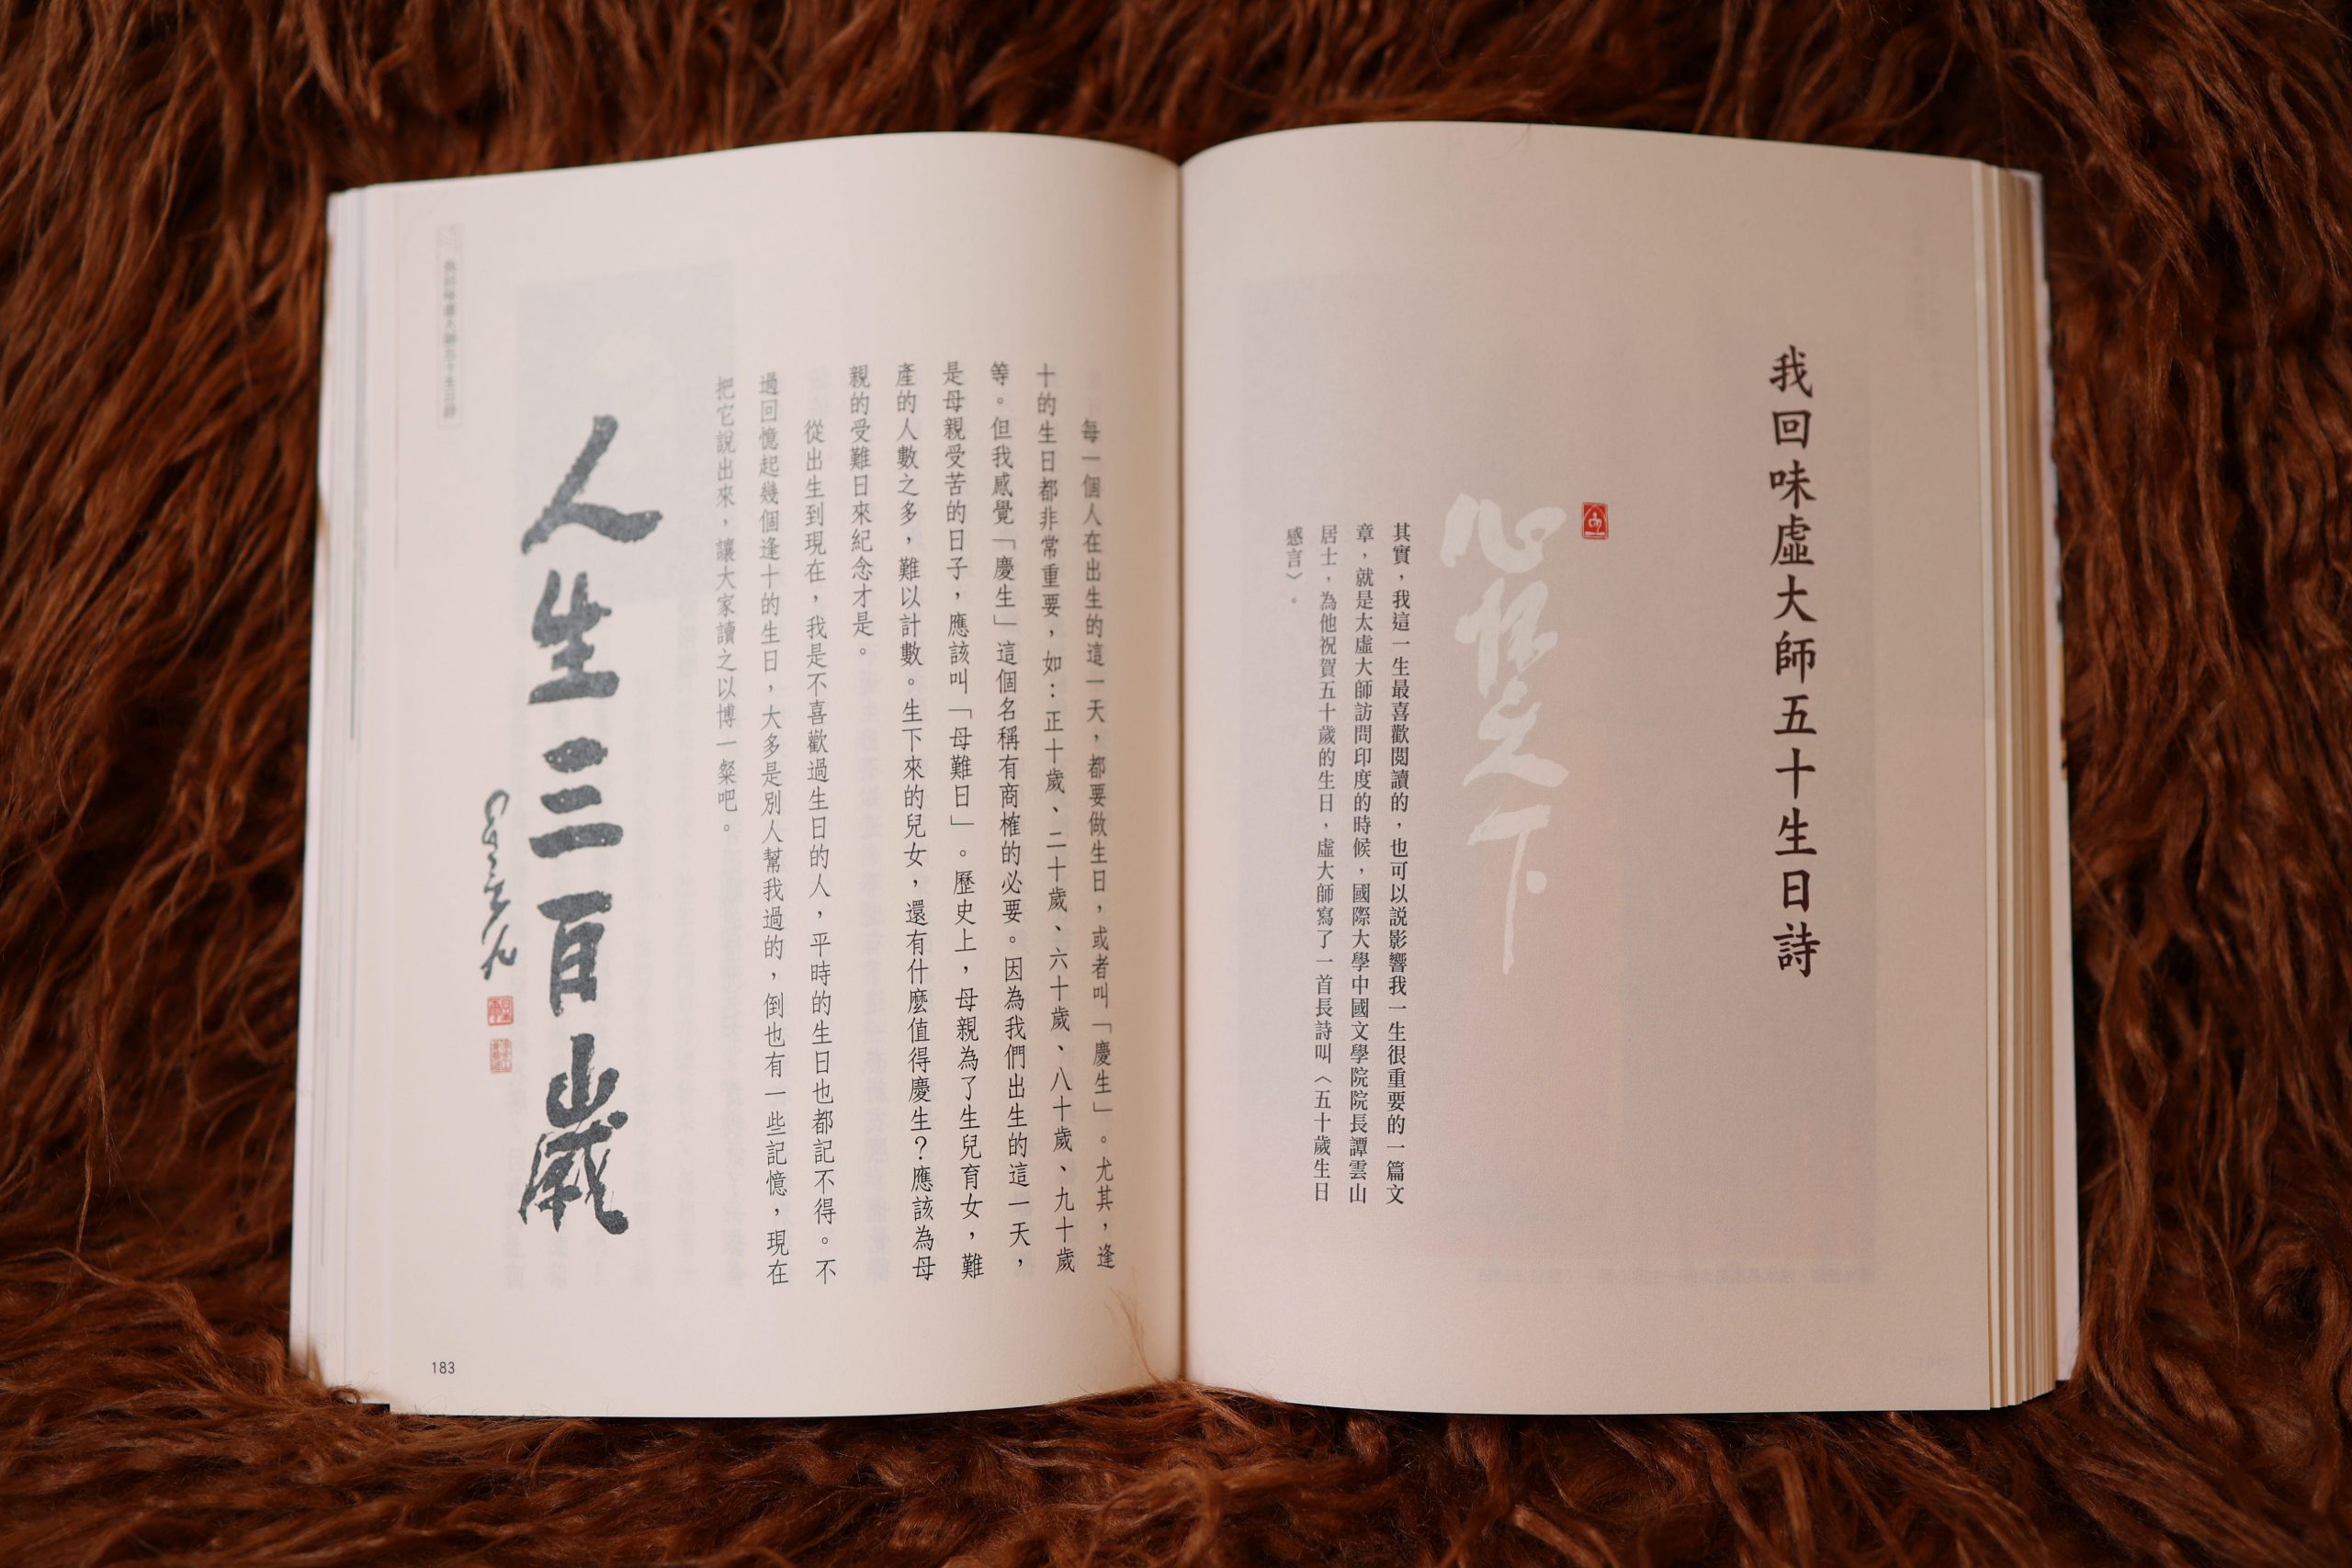 我回味虛大師五十生日詩
心懷天下
其實，我這一生最喜歡閱讀的，也可以説影響我一生很重要的一篇文
章，就是太虛大師訪問印度的時候，國際大學中國文學院院長譚雲山
居士，為他祝賀五十歲的生日，虛大師寫了一首長詩叫〈五十歲生日
感言〉。
每一個人在出生的這一天，都要做生日，或者叫「慶生」。尤其，逢
十的生日都非常重要，如：正十歲、二十歲、六十歲、八十歲、九十歲
等。但我感覺「慶生」這個名稱有商榷的必要。因為我們出生的這一天，
是母親受苦的日子，應該叫「母難日」。歷史上，母親為了生兒育女，難
產的人數之多，難以計數。生下來的兒女，還有什麼值得慶生？應該為母
親的受難日來紀念才是。
從出生到現在，我是不喜歡過生日的人，平時的生日也都記不得。不
過回憶起幾個逢十的生日，大多是別人幫我過的，倒也有一些記憶，現在
把它說出來，讓大家讀之以博一粲吧。
人生三百歲
我回味虛大師五十生日詩
183